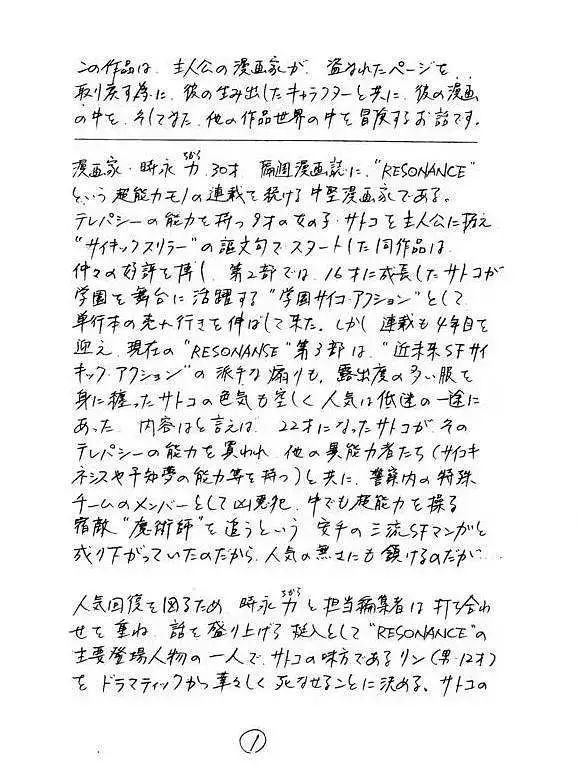 この作品は、主人公の漫画家が、盗まれたページを
取り戻す為に、彼の生み出したキャラクターと共に、彼の漫画
の中を、そしてまた、他の作品世界の中を冒険するお話です。
漫画家・時永 力、30才。隔週漫画誌に、"RESONANCE"
という超能力モノの連載を続ける中堅漫画家である。
テレパシーの能力を持つ9才の女の子・サトコを主人公に据え
"サイキックスリラー"の謳文句でスタートした同作品は、
仲々の好評を博し、第2部では、16才に成長したサトコが
学園を舞台に活躍する"学園サイコ・アクション"として
単行本の売れ行きを伸ばして来た。しかし連載も4年目を
迎え、現在の"RESONANSE"第3部は、"近未来SFサイ
キック・アクション"の派手な煽りも、露出度の多い服を
身に纏ったサトコの色気も空しく人気は低迷の一途に
あった。内容はと言えば、22才になったサトコがその
テレパシーの能力を買われ、他の異能力者たち(サイコキ
ネシスや予知夢の能力等を持つ)と共に、警察内の特殊
チームのメンバーとして凶悪犯、中でも超能力を操る
宿敵"魔術師"を追うという、安手の三流SFマンガと
成り下がっていたのだから、人気の無さにも頷けるのだが…
人気回復を図るため、時永 力と担当編集者は打ち合わ
せを重ね、話を盛り上げる梃入として"RESONANCE"の
主要登場人物の一人で、サトコの味方であるリン(男・12才)
を、ドラマティックかつ華々しく死なせることに決める。サトコの
①